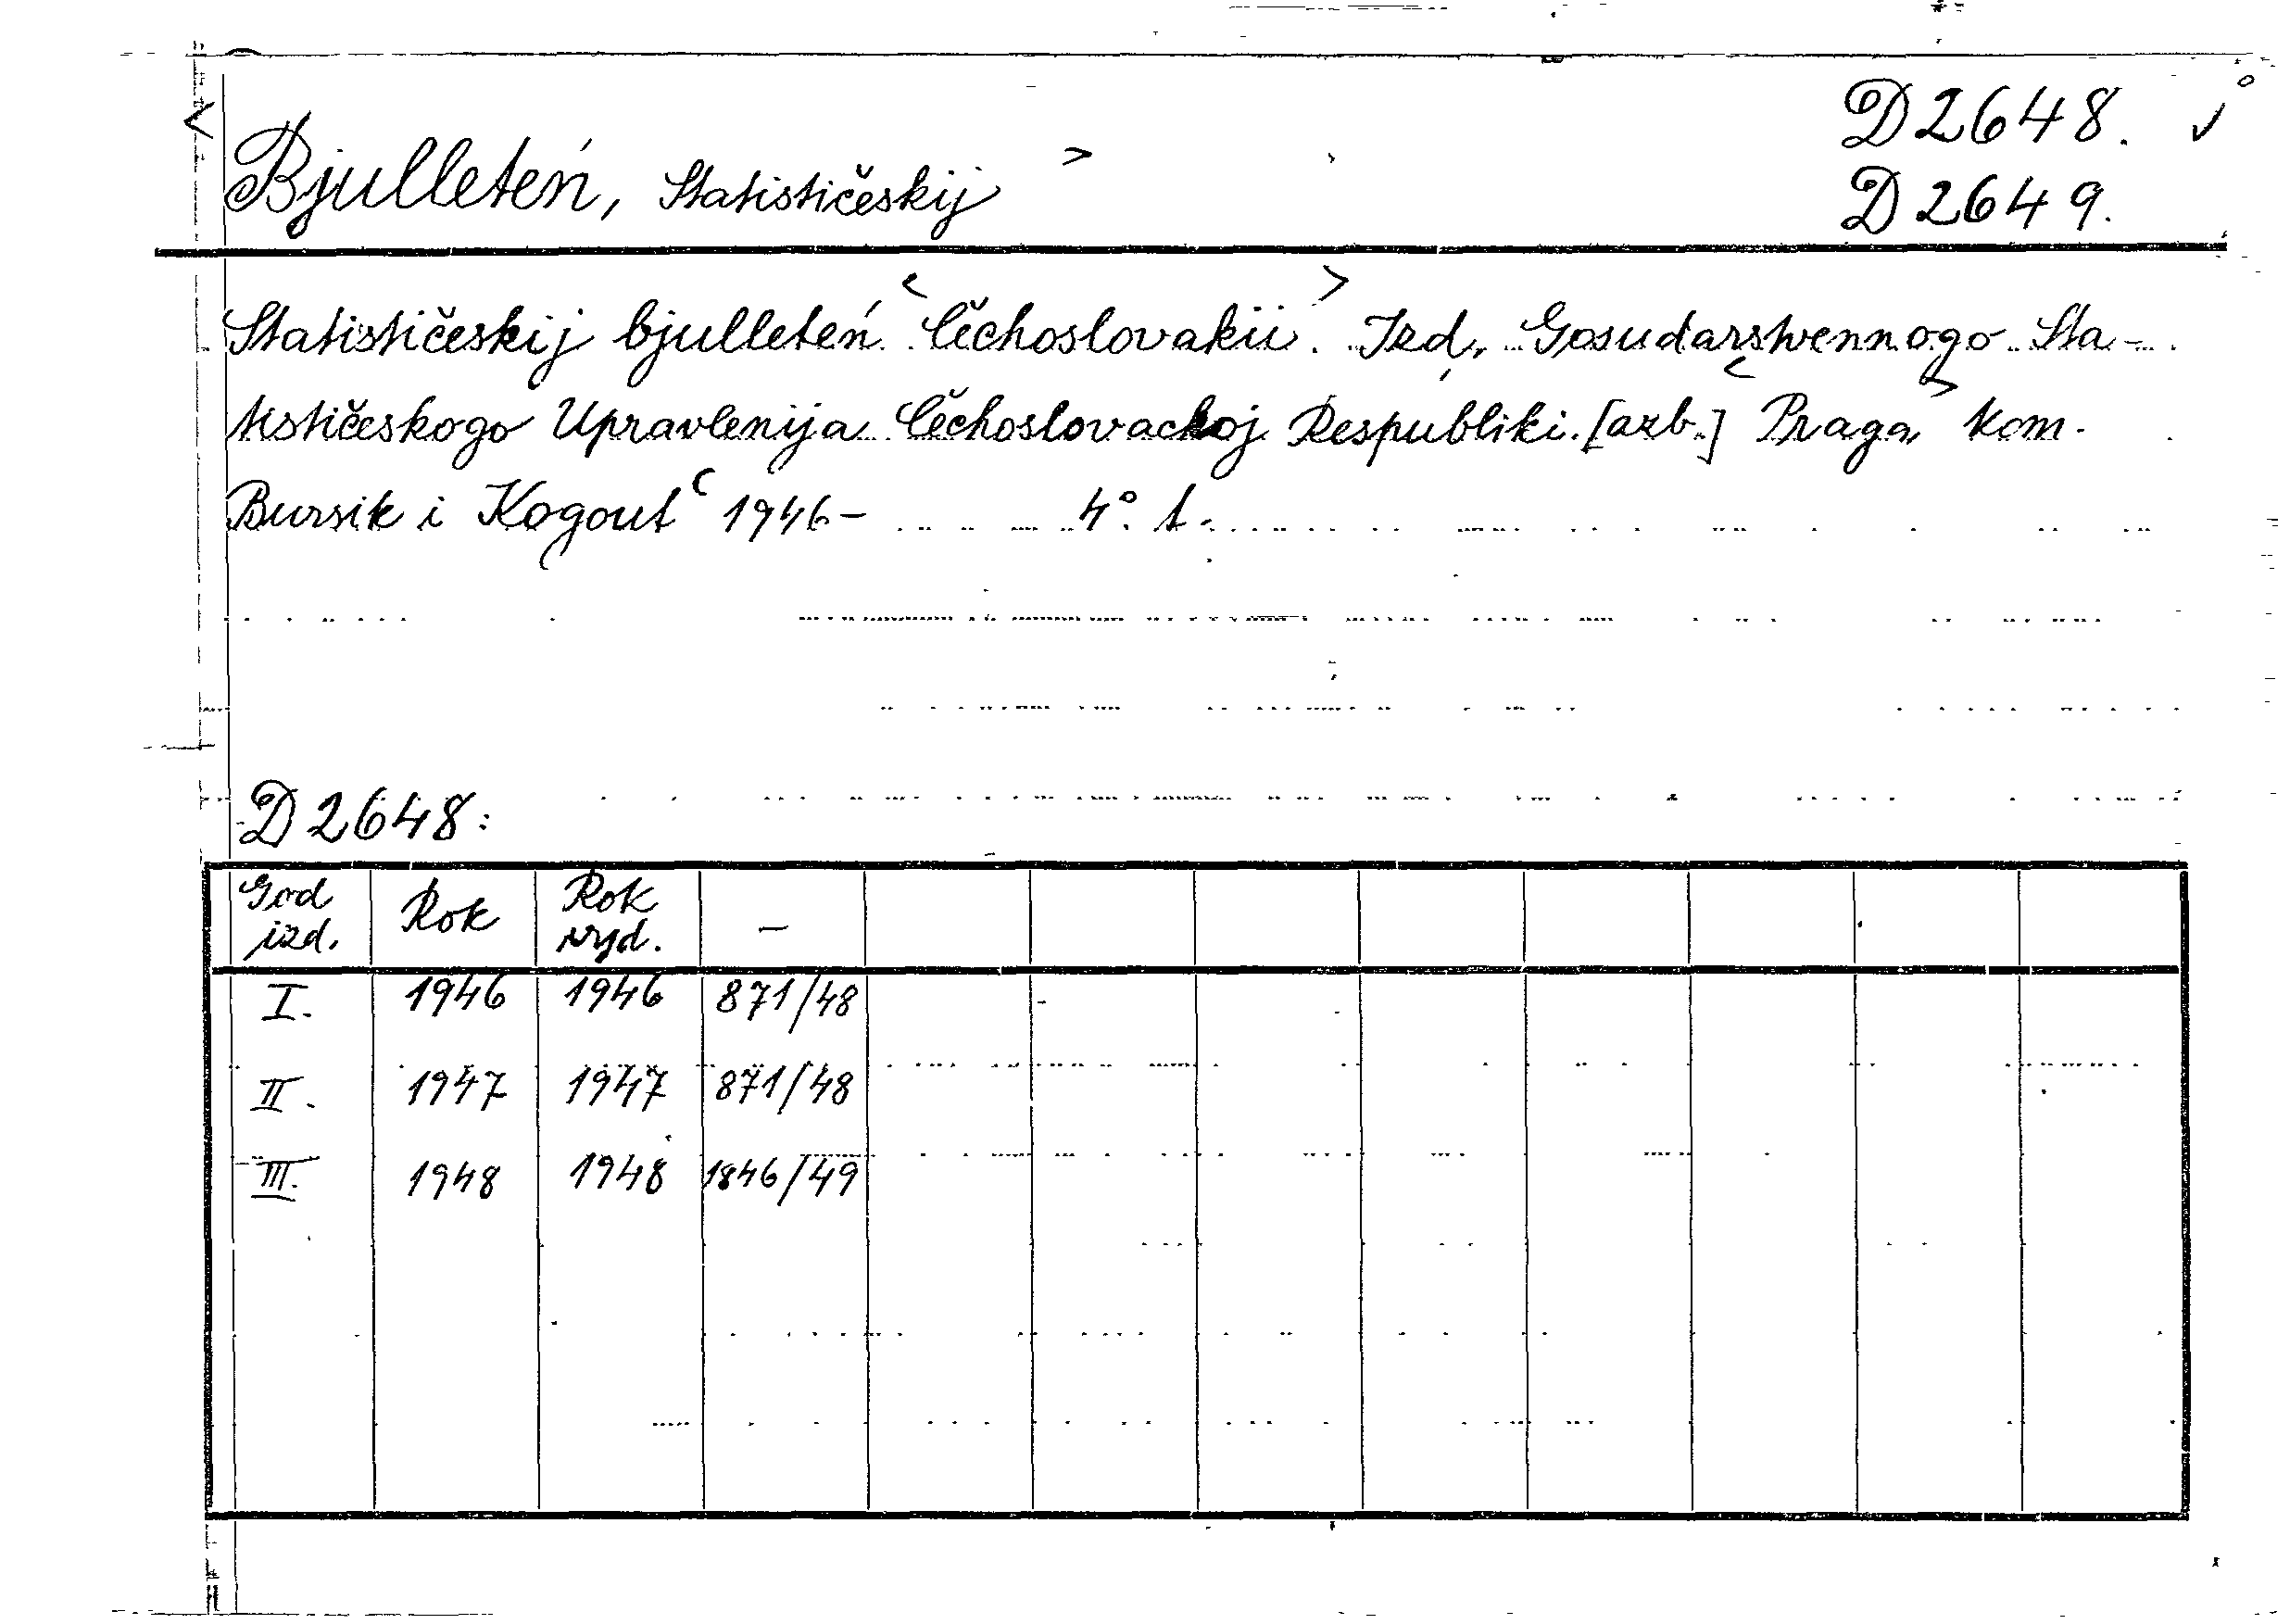 D 2648. √
Bjulleteń, Statističeskij
D 2649.
Statističeskij bjulleteń Čechoslovakii. Izd. Gosudarstvennogo Sta-
tističeskogo Upravlenija Čechoslovackoj Respubliki. [azb.] Praga, kom.
Bursik i Kogout 1946- 4°. t.
D 2648:
God izd. Rok Rok vyd. –
I. 1946 1946 871/48
II. 1947 1947 871/48
III. 1948 1948 1846/49